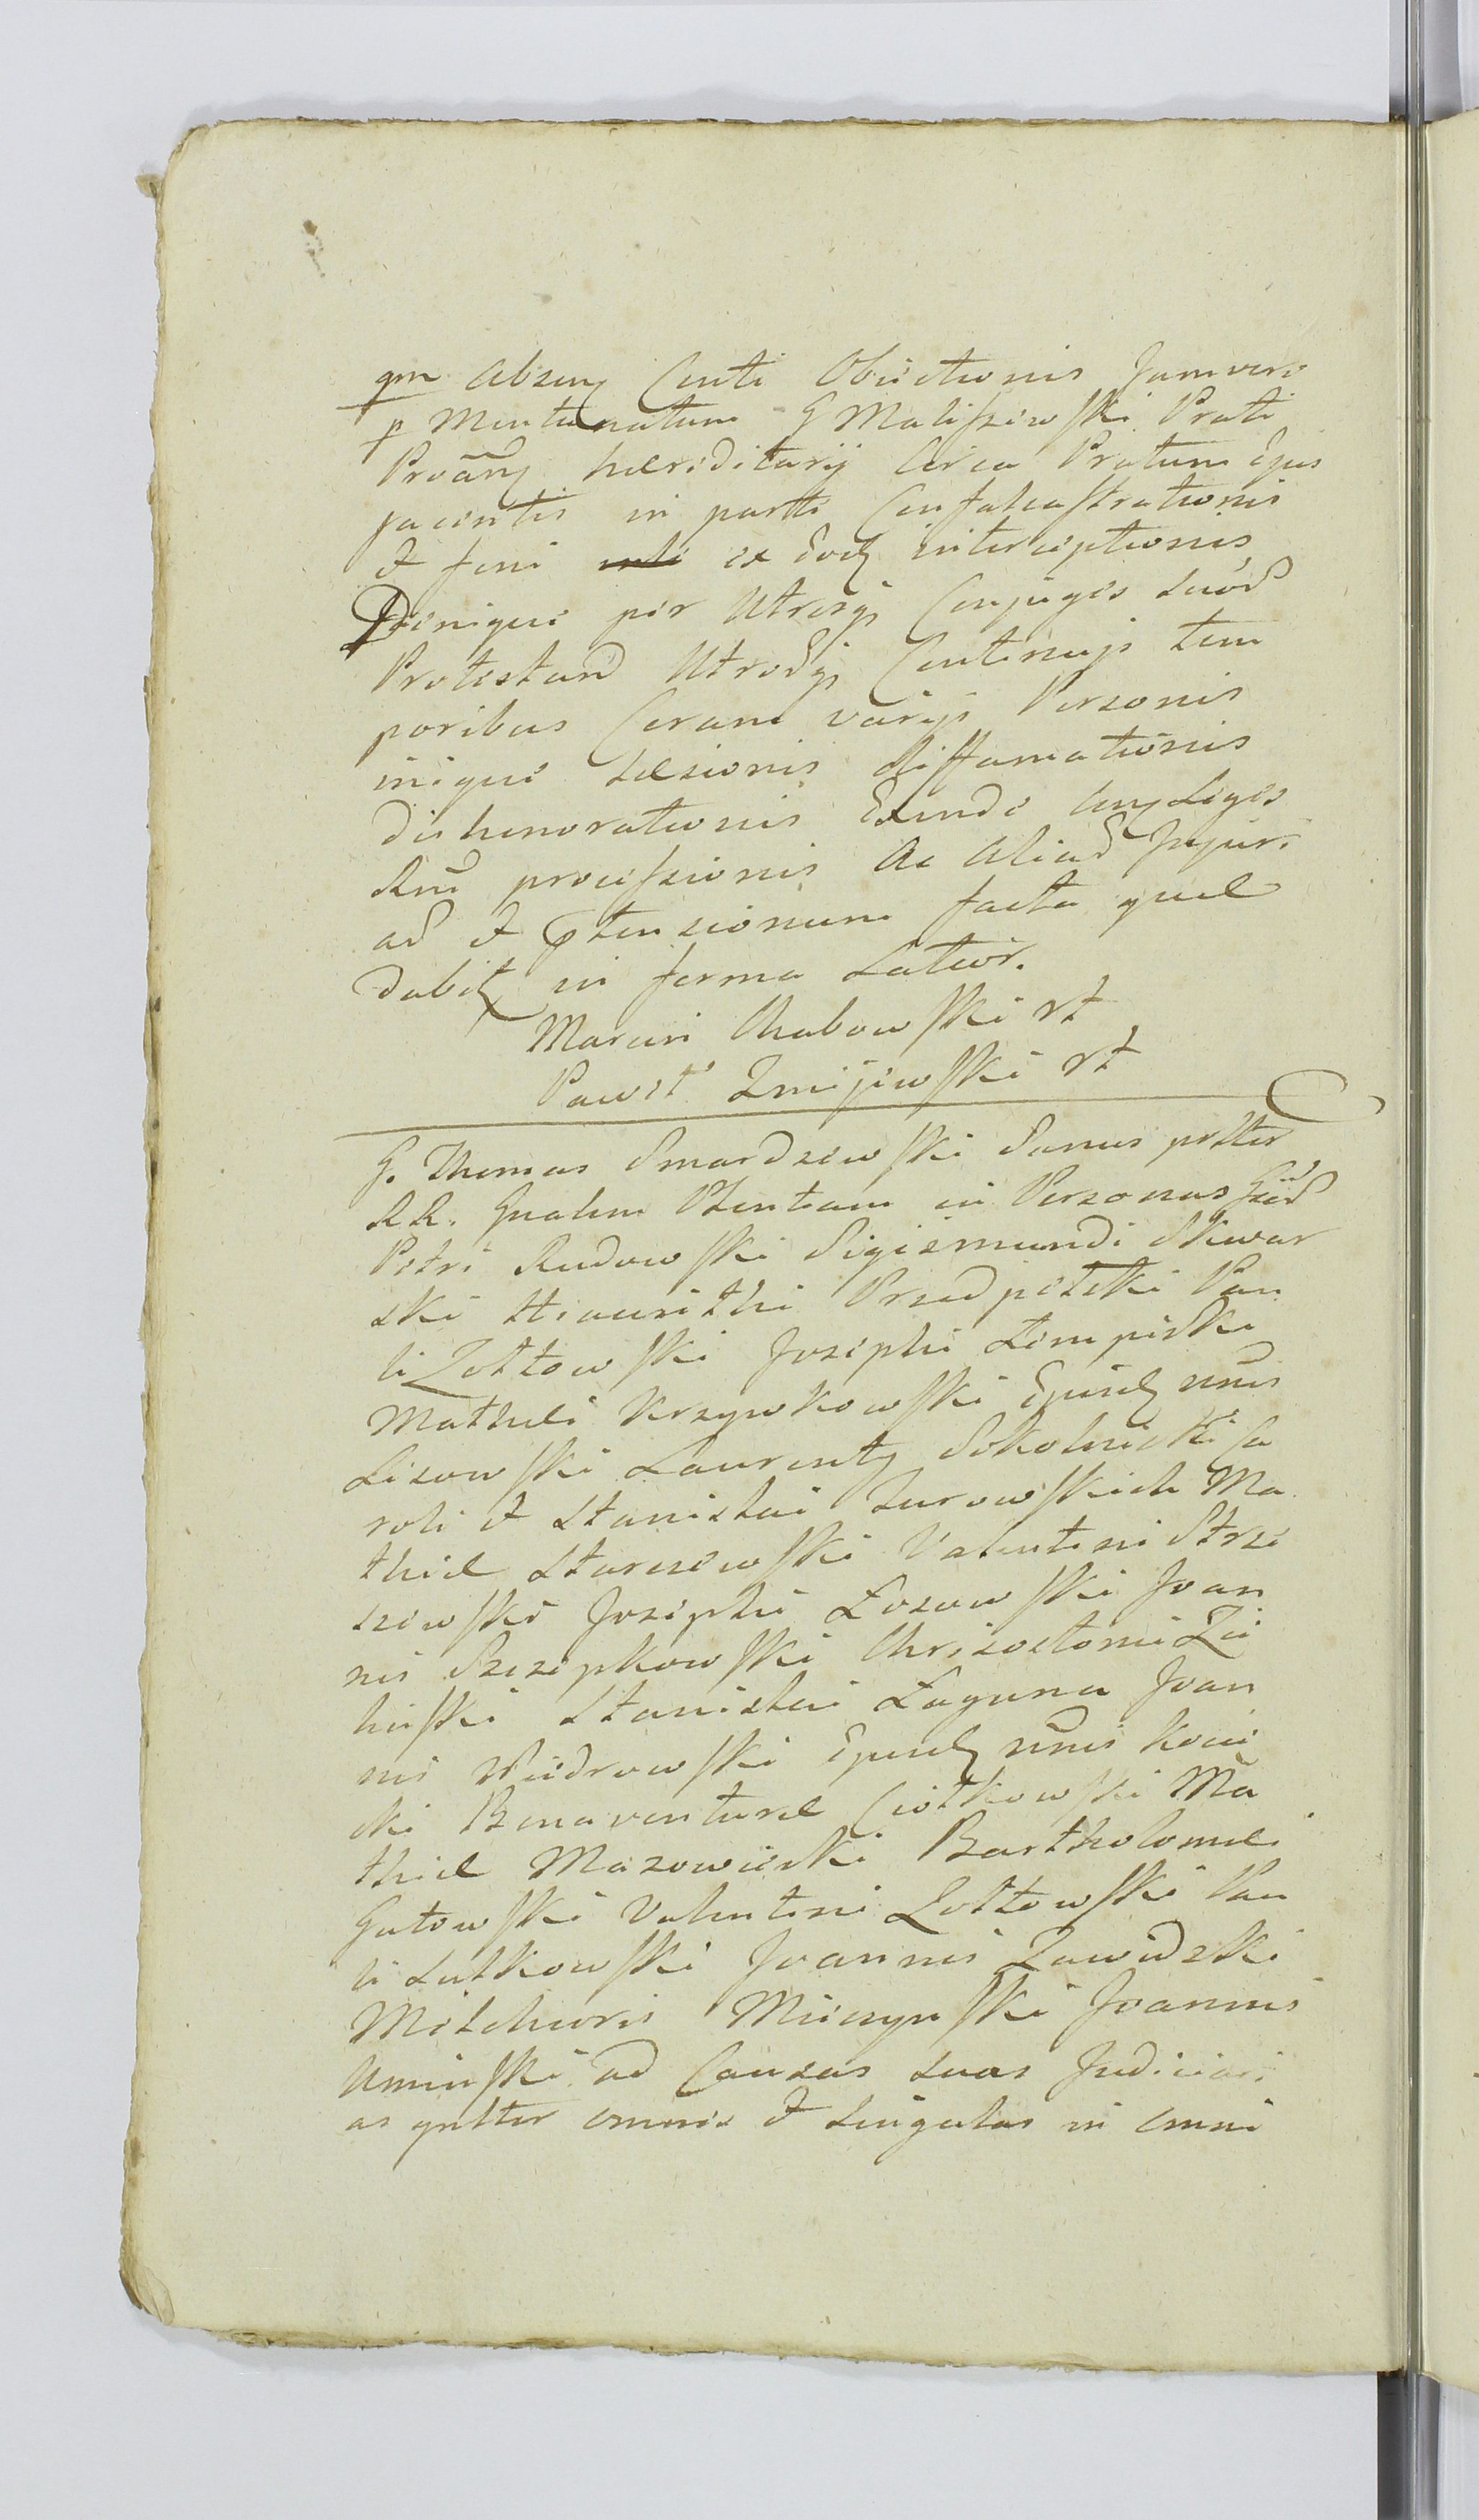 gm Absen Centi Obiectionis Jam vero
p Mentionatum G Maliszewski Prati
Proãn hæreditarij circa Pratum Ejus
jacentis in parte Confalcastrationis
et feni ex Eod interceptionis
Denique per Utrosq Conjuges suos
Protestand Utrosq Continujs tem
poribus Coram varijs Personis
inique Læsionis diffamationis
dishonorationis Exinde Leges
Rni processionis Ac Aliad Injuri
ad et ptensionum facta quæ
dabit in forma Latior.
Marcin Chabowski rt
Paweł Zmijewski rt
G. Thomas Smardzewski Sanus pstter
RR. Gnalem Ptentiam in Personas Gnd
Petri Rudowski Sigismundi Skwar
ski Hiacinthi Przedpełski Pau
li Zołtowski Josephi Lempicki
Mathæi Krzywkowski Ejusd nnis
Lisowski Laurenty Sokolnicki Ca
roli et Stanislai Zurowskich Ma
thiæ Starczewski Valentini Strze
szewski Josephi Łosowski Joan
nis Szczepkowski Chrisostomi Zie
liński Stanislai Łaguna Joan
nis Wiidrowski Ejusd nnis Kowi
cki Bonaventuræ Ciołkowski Ma
thiæ Mazowiecki Bartholomæi
Gutowski Valentini Zołtowski Pau
li Lutkowski Joannis Zawidzki
Melchioris Mieczynski Joannis
Uminski ad Causas suas Judiciari
as gnltter omnes et singulas in omni